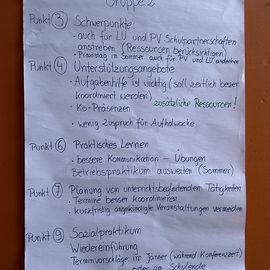 Gruppe 2
Punkt 3 Schwerpunkte
• auch für LU und PV Schulpartnerschaften
anstreben (Ressourcen berücksichtigen)
• Praxistag im Sommer auch für PV und LU andenken
Punkt 4 Unterstützungsangebote
• Aufgabenhilfe ist wichtig (soll zeitlich besser
koordiniert werden)
zusätzliche Ressourcen!
• Ko-Präsenzen
• wenig Zuspruch für Aufholwocke
Punkt 6 Praktisches Lernen
• bessere Kommunikation – Übungen
Betriebspraktikum ausweiten (Sommer)
Punkt 7 Planung von unterrichtsbegleitenden Tätigkeiten
• Termine besser koordinieren
• kurzfristig angekündigte Veranstaltungen vermeiden
Punkt 9 Sozialpraktikum
Wiedereinführung
Terminvorschläge im Jänner (während Konferenzzeit)
oder am Schulende